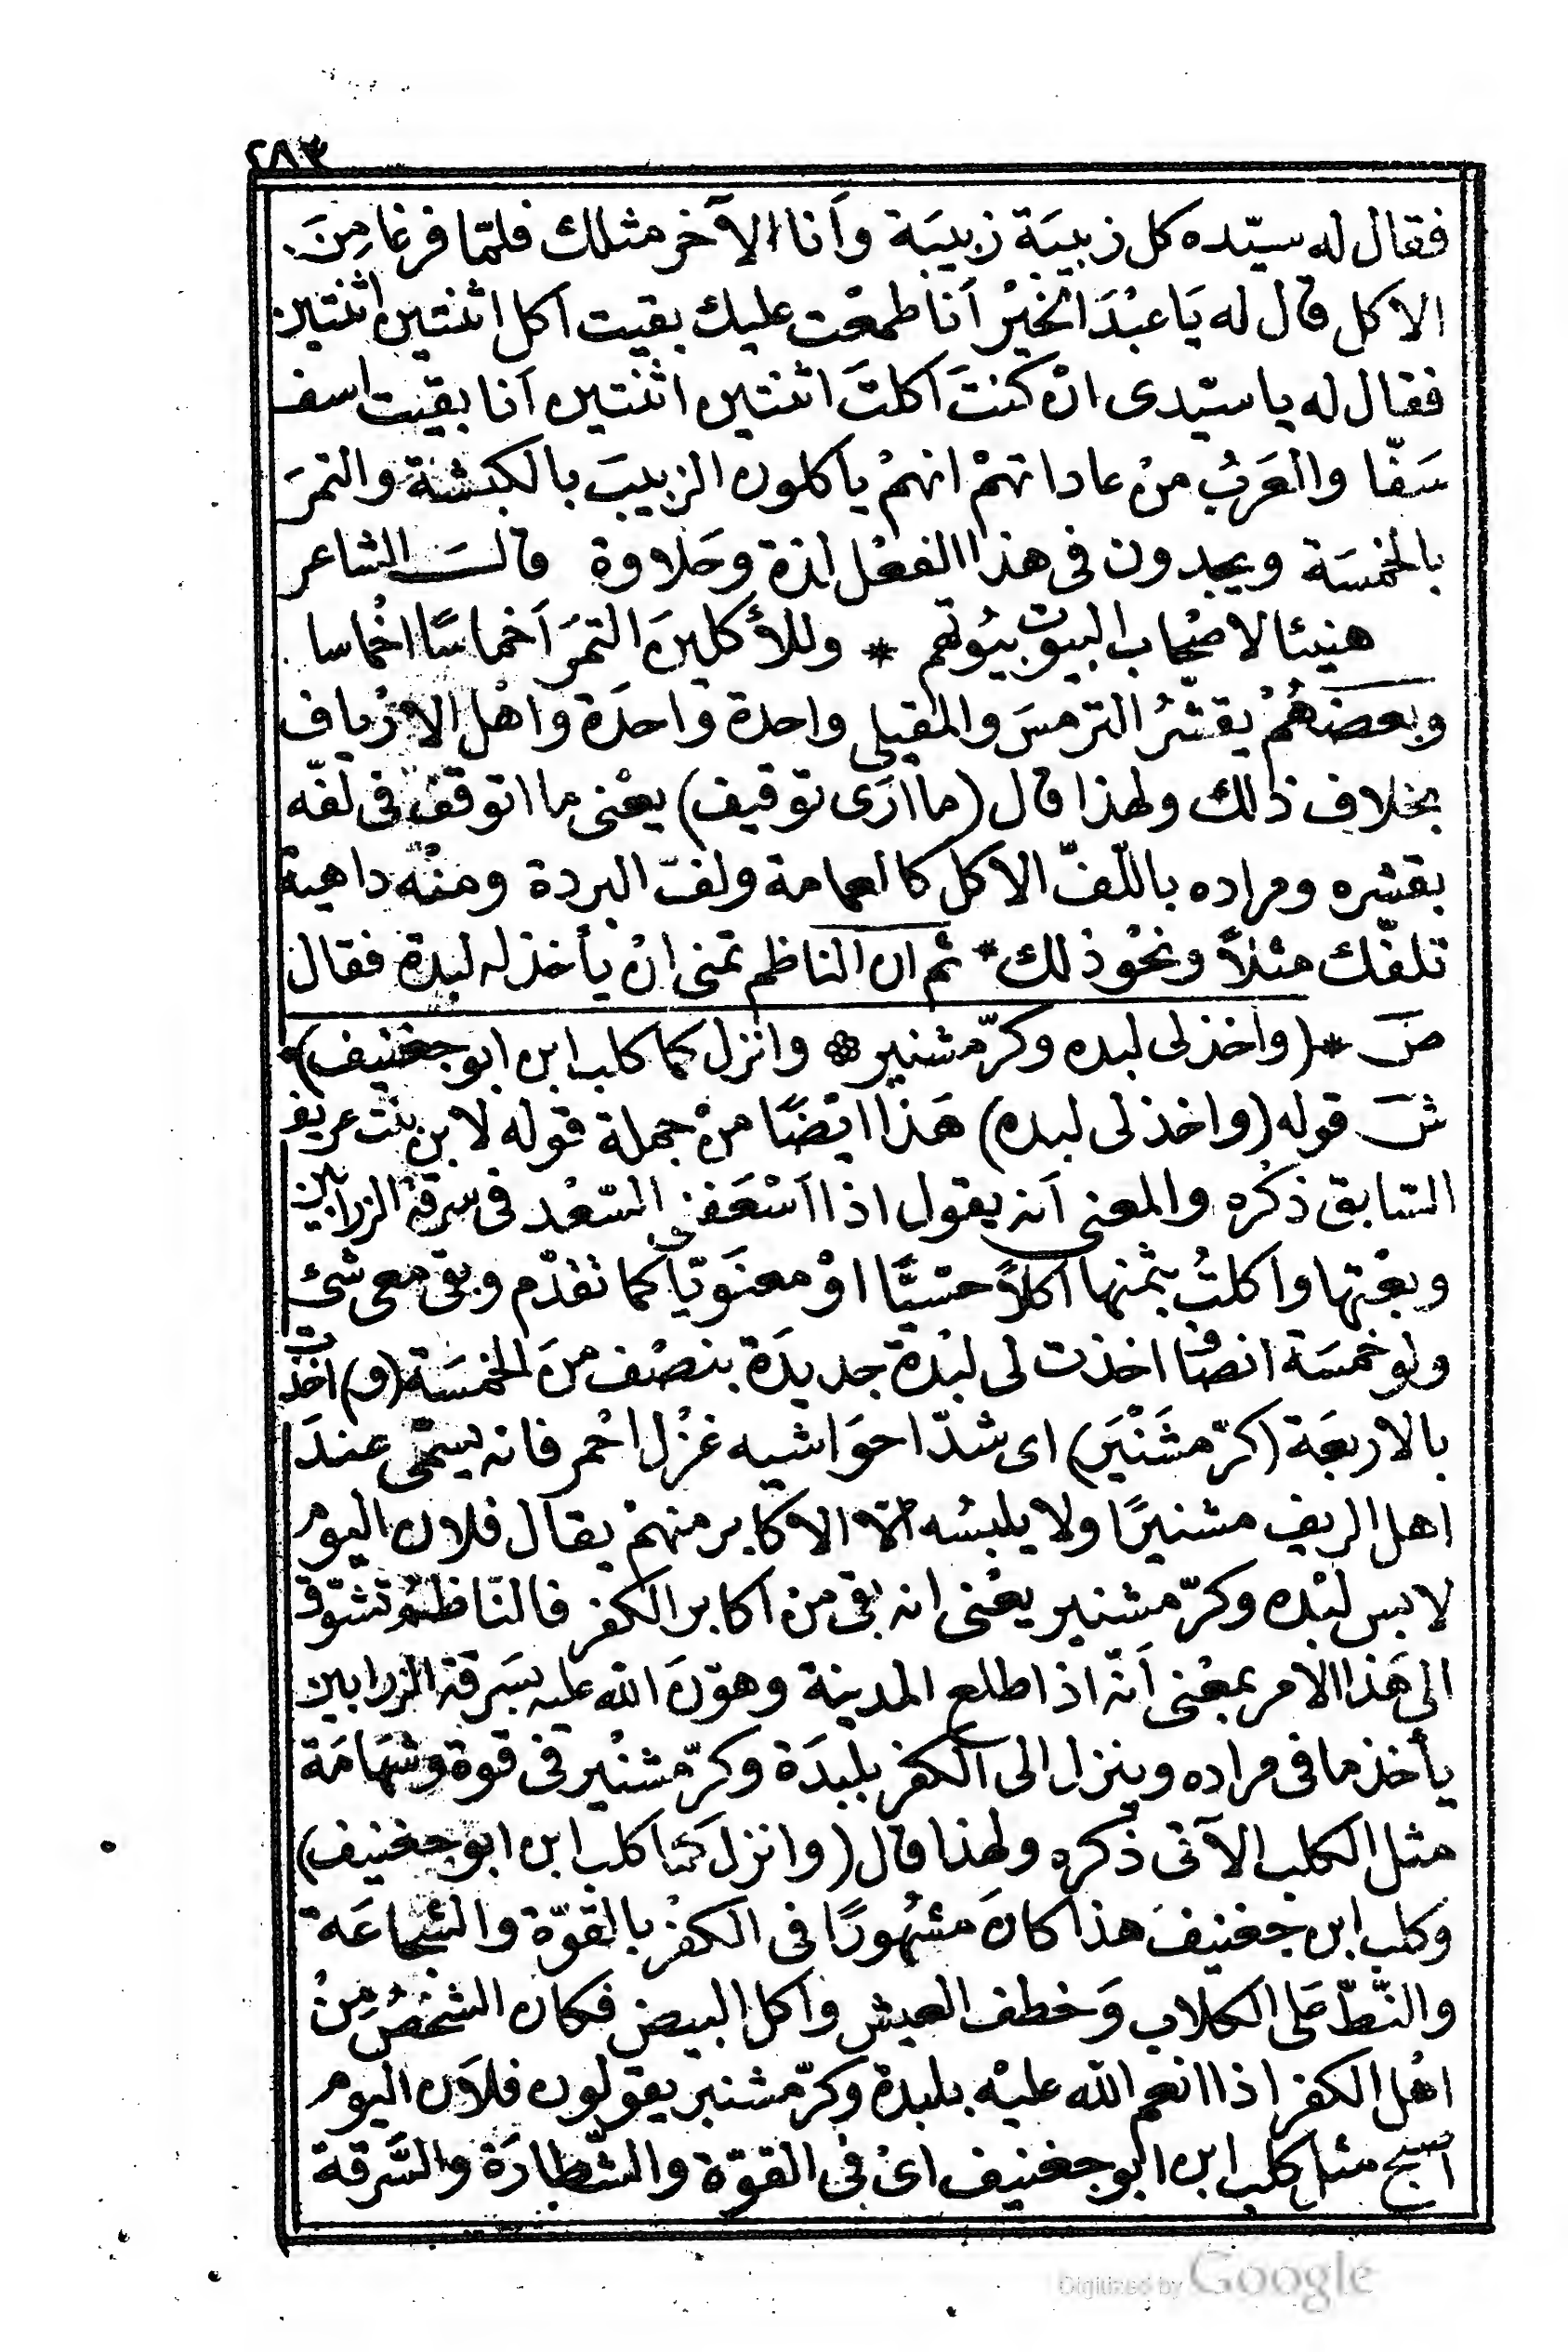 ٢٨٣
فقال له سيّده كل زبيبَة زبيبَة وأنا الآخر مثلك فلمّا فرغا مِنَ
الاكل قال له يَا عبْدَ الخيْر أنا طمعْت عليك بقيت آكل اثنتين اثنتين
فقال له يا سيّدى انْ كنتَ اكلتَ اثنتين اثنتين أنا بقيت اسف
سَفّا والعَربُ منْ عاداتهمْ انهمْ يأكلون الزبيبَ بالكبشة والتمرَ
بالخمسَة ويجدون فى هذا الفعْل لذة وحَلاوة قالـــ الشاعر
هنيئا لاصْحاب البيوت بيُوتهم * وللأكلينَ التمرَ أخماسًا اخْماسا
وبعضهُمْ يقشرُ الترمسَ والمقيلى واحدة واحدَة واهْل الارْياف
بخلاف ذلك ولهذا قال (ما ارَى توقيف) يعْنى ما اتوقفْ فى لفّه
بقشره ومراده باللّفّ الاكل كالعمامة ولفّ البردة ومنْه داهية
تلفّك مثلاً ونحْو ذلك * ثم ان الناظم تمنى انْ يأخذ له لبدة فقال
صَ * (واخذ لى لبده وكرّ مشنير * وانزل كما كلب ابن ابو جغنيف)
شَ قوله (واخذ لى لبده) هَذا ايْضًا منْ جملة قوله لابن بنت عريف
السّابق ذكْره والمعنى أنه يقول اذا اسْعَفنى السّعْد فى سرقة الزرابين
وبعْتها واكلتُ بثمنها أكلاً حسّيًّا اوْ معنَويّا كما تقدّم وبقى معى شئ
ولو خمسَة انصْاف اخذت لى لبْدة جديدَة بنصْف منَ الخمسَة (و) اخذت
بالاربعَة (كرّ مشَنْيَر) اى شدّا حوَاشيه غزْل احْمر فانه يسمّى عندَ
اهل الريف مشنيرًا ولا يلبسُه الّا الاكابر منهمْ يقال فلان اليوم
لابس لبْده وكرّ مشنير يعْنى انه بقى من أكابر الكفر فالنّاظمُ تشوّق
الى هَذا الامر بمعْنى أنّه اذا طلع المدينة وهوّنَ الله عليه بسَرقة الزرابين
يأخذ ما فى مراده وينزل الى الكفر بلبدَة وكرّ مشنْير فى قوة وشهَامَة
مثل الكلب الآتى ذكره ولهذا قال (وانزل كما كلب ابن ابو جغنيف)
وكلب ابن جغنيفَ هذا كانَ مشهُورًا فى الكفْر بالقوّة والشجاعَة
والنّطّ عَلى الكلاب وَخطف العيش وأكل البيض فكان الشخْصُ مِنْ
اهْل الكفر اذا انعم الله عليْه بلبدة وكرّ مشنير يقولون فلاَن اليوم
اصبح مثل كلب ابن ابو جغنيف اىْ فى القوّة والشّطارَة والسَّرقة
Digitized by Google